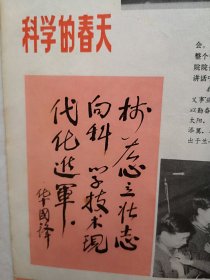 科学的春天
树雄心立壮志
向科学技术现
代化進軍。
华国锋
会。
整个
院院
讲话
以勤奋
太阳，
添翼，
出于兰